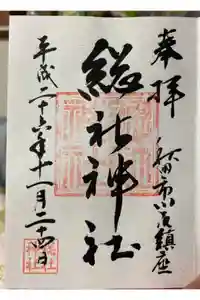 奉拝
秋田市小古鎮座
総社神社
平成二十六年十一月二十四日